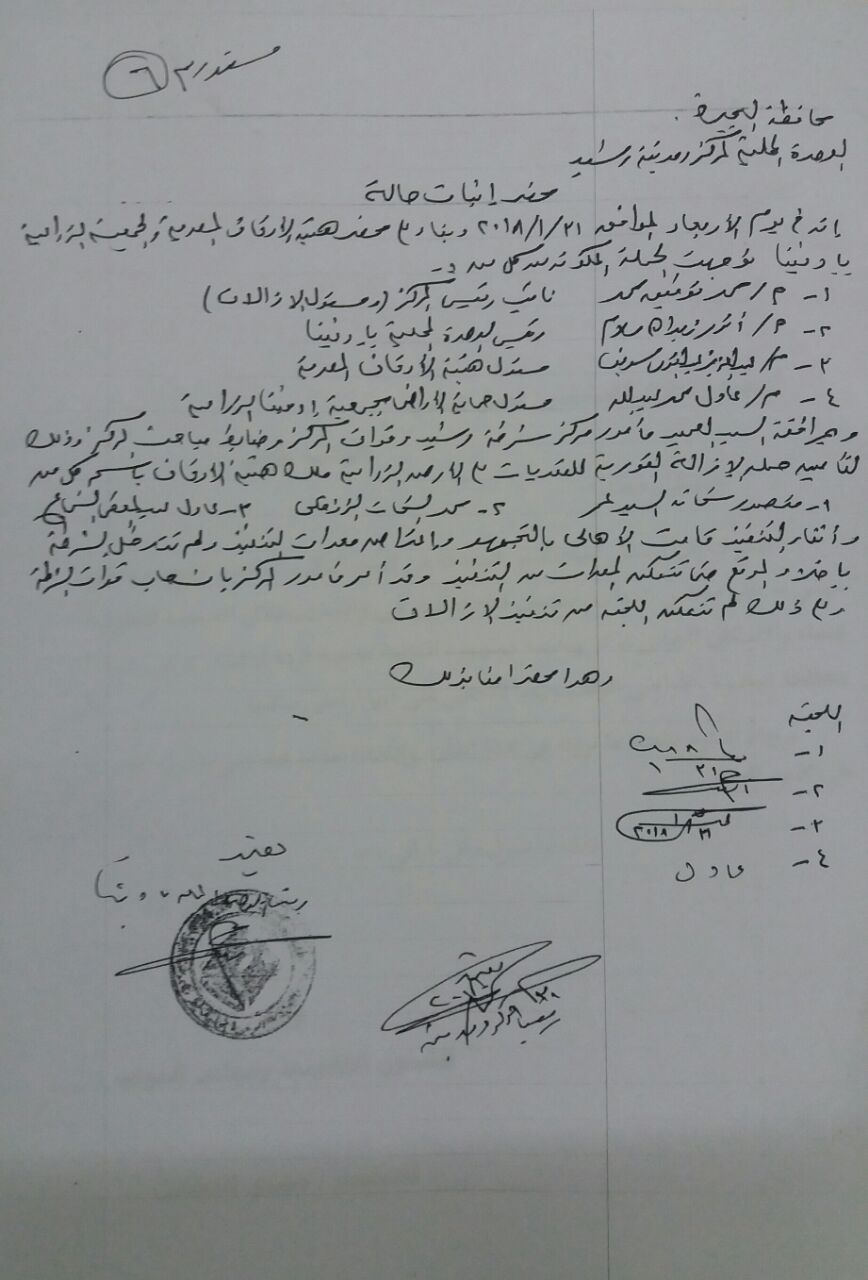 مستند رقم ٦
محافظة البحيرة
الوحدة المحلية لمركز ومدينة رشيد
محضر إثبات حالة
إنه في يوم الأربعاء الموافق ٢٠١٨/١/٣١ وبناء على محضر هيئة الأوقاف المصرية والجمعية الزراعية
بإدفينا توجهت الحملة المكونة من كل من :-
١- م/ محمد توفيق محمد نائب رئيس المركز (ومسئول الازالات)
٢- م/ أنور زيدان سلام رئيس الوحدة المحلية بإدفينا
٣- م/ مسئول هيئة الأوقاف المصرية
٤- م/ عادل محمد عبدالله مسئول حماية الأراضى بجمعية إدفينا الزراعية
وبمرافقة السيد العميد مأمور مركز شرطة رشيد وقوات المركز وضابط مباحث المركز وذلك
لتأمين حملة الإزالة الفورية للتعديات على الأرض الزراعية ملك هيئة الأوقاف باسم كل من
١- شحاته السيد ٢- محمد الشحات ٣- عادل
وأثناء التنفيذ قامت الأهالى بالتجمهر واعتراض معدات التنفيذ ولم تتدخل الشرطة
بإخلاء الموقع حتى تتمكن المعدات من التنفيذ وقد أمر مأمور المركز بانسحاب قوات الشرطة
وعلى ذلك لم تتمكن اللجنة من تنفيذ الازالات
وهذا محضر امنا بذلك
اللجنة
١-
٢-
٣- ٢٠١٨
٤- عادل
يعتمد
رئيس الوحدة المحلية بإدفينا
رئيس مركز ومدينة